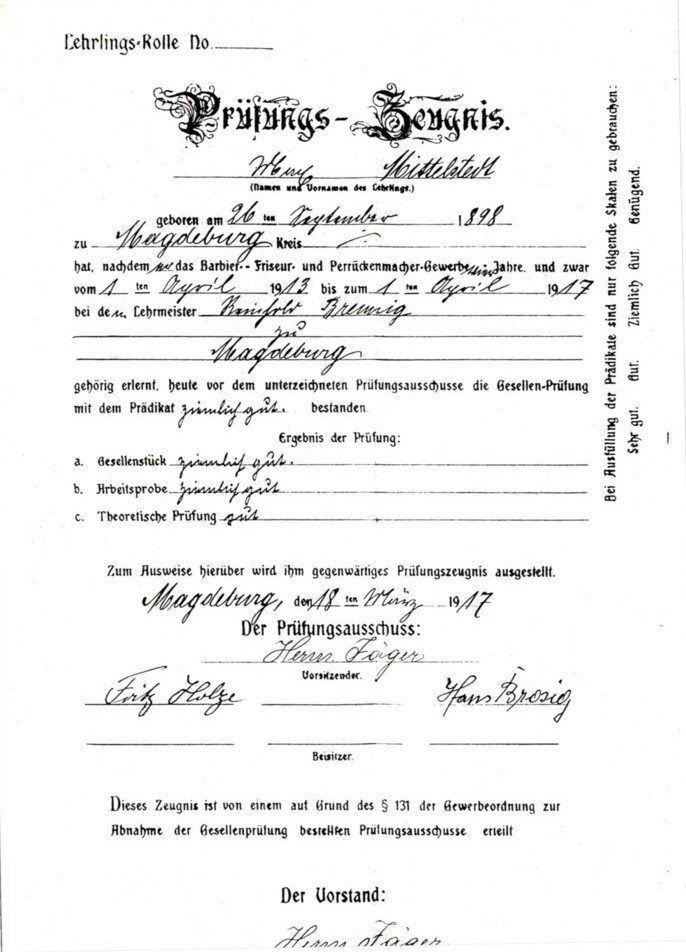 Lehrlings-Rolle No.
Prüfungs-Zeugnis.
Mittelstedt
(Namen und Vornamen des Lehrlings.)
geboren am 26 ten September 1898
zu Magdeburg Kreis
hat, nachdem er das Barbier-- Friseur- und Perrückenmacher-Gewerbe Jahre, und zwar
vom 1 ten April 1913 bis zum 1 ten April 1917
bei dem Lehrmeister Reinhold Brennig
zu
Magdeburg
gehörig erlernt, heute vor dem unterzeichneten Prüfungsausschusse die Gesellen-Prüfung
mit dem Prädikat ziemlich gut. bestanden
Ergebnis der Prüfung:
a. Gesellenstück ziemlich gut.
b. Arbeitsprobe ziemlich gut
c. Theoretische Prüfung gut
Zum Ausweise hierüber wird ihm gegenwärtiges Prüfungszeugnis ausgestellt.
Magdeburg, den 18 ten März 1917
Der Prüfungsausschuss:
Herm. Jäger
Vorsitzender.
Fritz Holze Hans Brosig
Beisitzer.
Dieses Zeugnis ist von einem auf Grund des § 131 der Gewerbeordnung zur
Abnahme der Gesellenprüfung bestellten Prüfungsausschusse erteilt
Der Vorstand:
Herm. Jäger
Bei Ausfüllung der Prädikate sind nur folgende Skalen zu gebrauchen:
Sehr gut. Gut. Ziemlich Gut. Genügend.